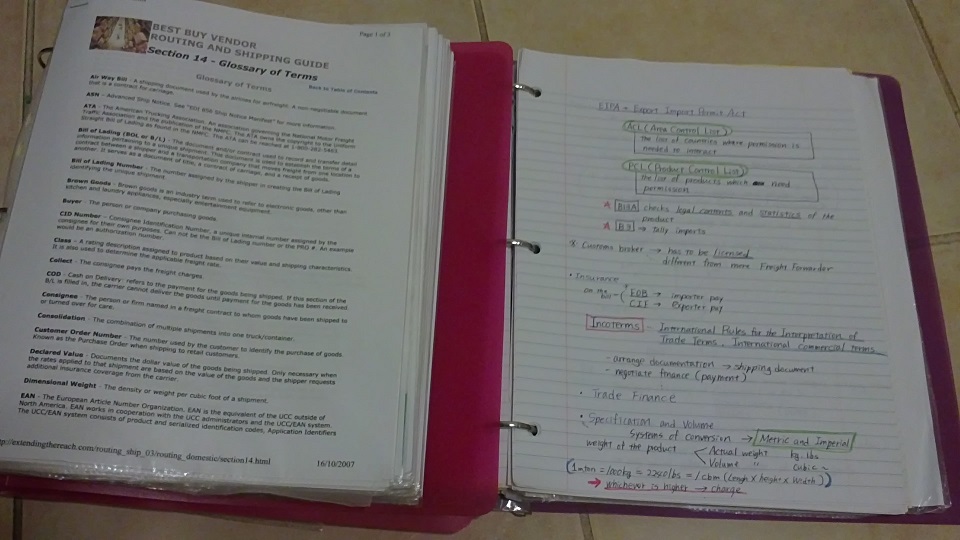 Page 1 of 3
BEST BUY VENDOR
ROUTING AND SHIPPING GUIDE
Section 14 - Glossary of Terms
Glossary of Terms
Back to Table of Contents
Air Way Bill - A shipping document used by the airlines for airfreight. A non-negotiable document
that is a contract for carriage.
ASN - Advanced Ship Notice. See "EDI 856 Ship Notice Manifest" for more information.
ATA - The American Trucking Association. An association governing the National Motor Freight
Traffic Association and the publication of the NMFC. The ATA owns the copyright to the Uniform
Straight Bill of Lading as found in the NMFC. The ATA can be reached at
Bill of Lading (BOL or B/L) - The document and/or contract used to record and transfer detail
information pertaining to a unique shipment. This document is used to establish the terms of a
contract between a shipper and a transportation company that moves freight from one location to
another. It serves as a document of title, a contract of carriage, and a receipt of goods.
Bill of Lading Number - The number assigned by the shipper in creating the Bill of Lading
identifying the unique shipment.
Brown Goods - Brown goods is an industry term used to refer to electronic goods, other than
kitchen and laundry appliances, especially entertainment equipment.
Buyer - The person or company purchasing goods.
CID Number - Consignee Identification Number, a unique internal number assigned by the
consignee for their own purposes. Can not be the Bill of Lading number or the PRO #. An example
would be an authorization number.
Class - A rating description assigned to product based on their value and shipping characteristics.
It is also used to determine the applicable freight rate.
Collect - The consignee pays the freight charges.
COD - Cash on Delivery- refers to the payment for the goods being shipped. If this section of the
B/L is filled in, the carrier cannot deliver the goods until payment for the goods has been received.
Consignee - The person or firm named in a freight contract to whom goods have been shipped to
or turned over for care.
Consolidation - The combination of multiple shipments into one truck/container.
Customer Order Number - The number used by the customer to identify the purchase of goods.
Known as the Purchase Order when shipping to retail customers.
Declared Value - Documents the dollar value of the goods being shipped. Only necessary when
the rates applied to that shipment are based on the value of the goods and the shipper requests
additional insurance coverage from the carrier.
Dimensional Weight - The density or weight per cubic foot of a shipment.
EAN - The European Article Number Organization. EAN is the equivalent of the UCC outside of
North America. EAN works in cooperation with the UCC administrators and the UCC/EAN system.
The UCC/EAN system consists of product and serialized identification codes, Application Identifiers
tp://extendingthereach.com/routing_ship_03/routing_domestic/section14.html
16/10/2007
EIPA = Export Import Permit Act
ACL (Area Control List)
the list of countries where permission is
needed to interact
PCL (Product Control List)
the list of products which need
permission
checks legal contents and statistics of the
product
→ tally imports
* Customs broker → has to be licensed
different from mere Freight Forwarder
• Insurance
on
FOB → importer pay
CIF → Exporter pay
Incoterms - International Rules for the Interpretation of
Trade Terms. International commercial terms
- arrange documentation → shipping document
- negotiate finance (payment)
• Trade Finance
• Specification and Volume
Systems of conversion → Metric and Imperial
weight of the product < Actual weight kg. lbs
Volume " cubic ~
= 1000kg = = 1 cbm (Length x height x width)
→ whichever is higher → charge